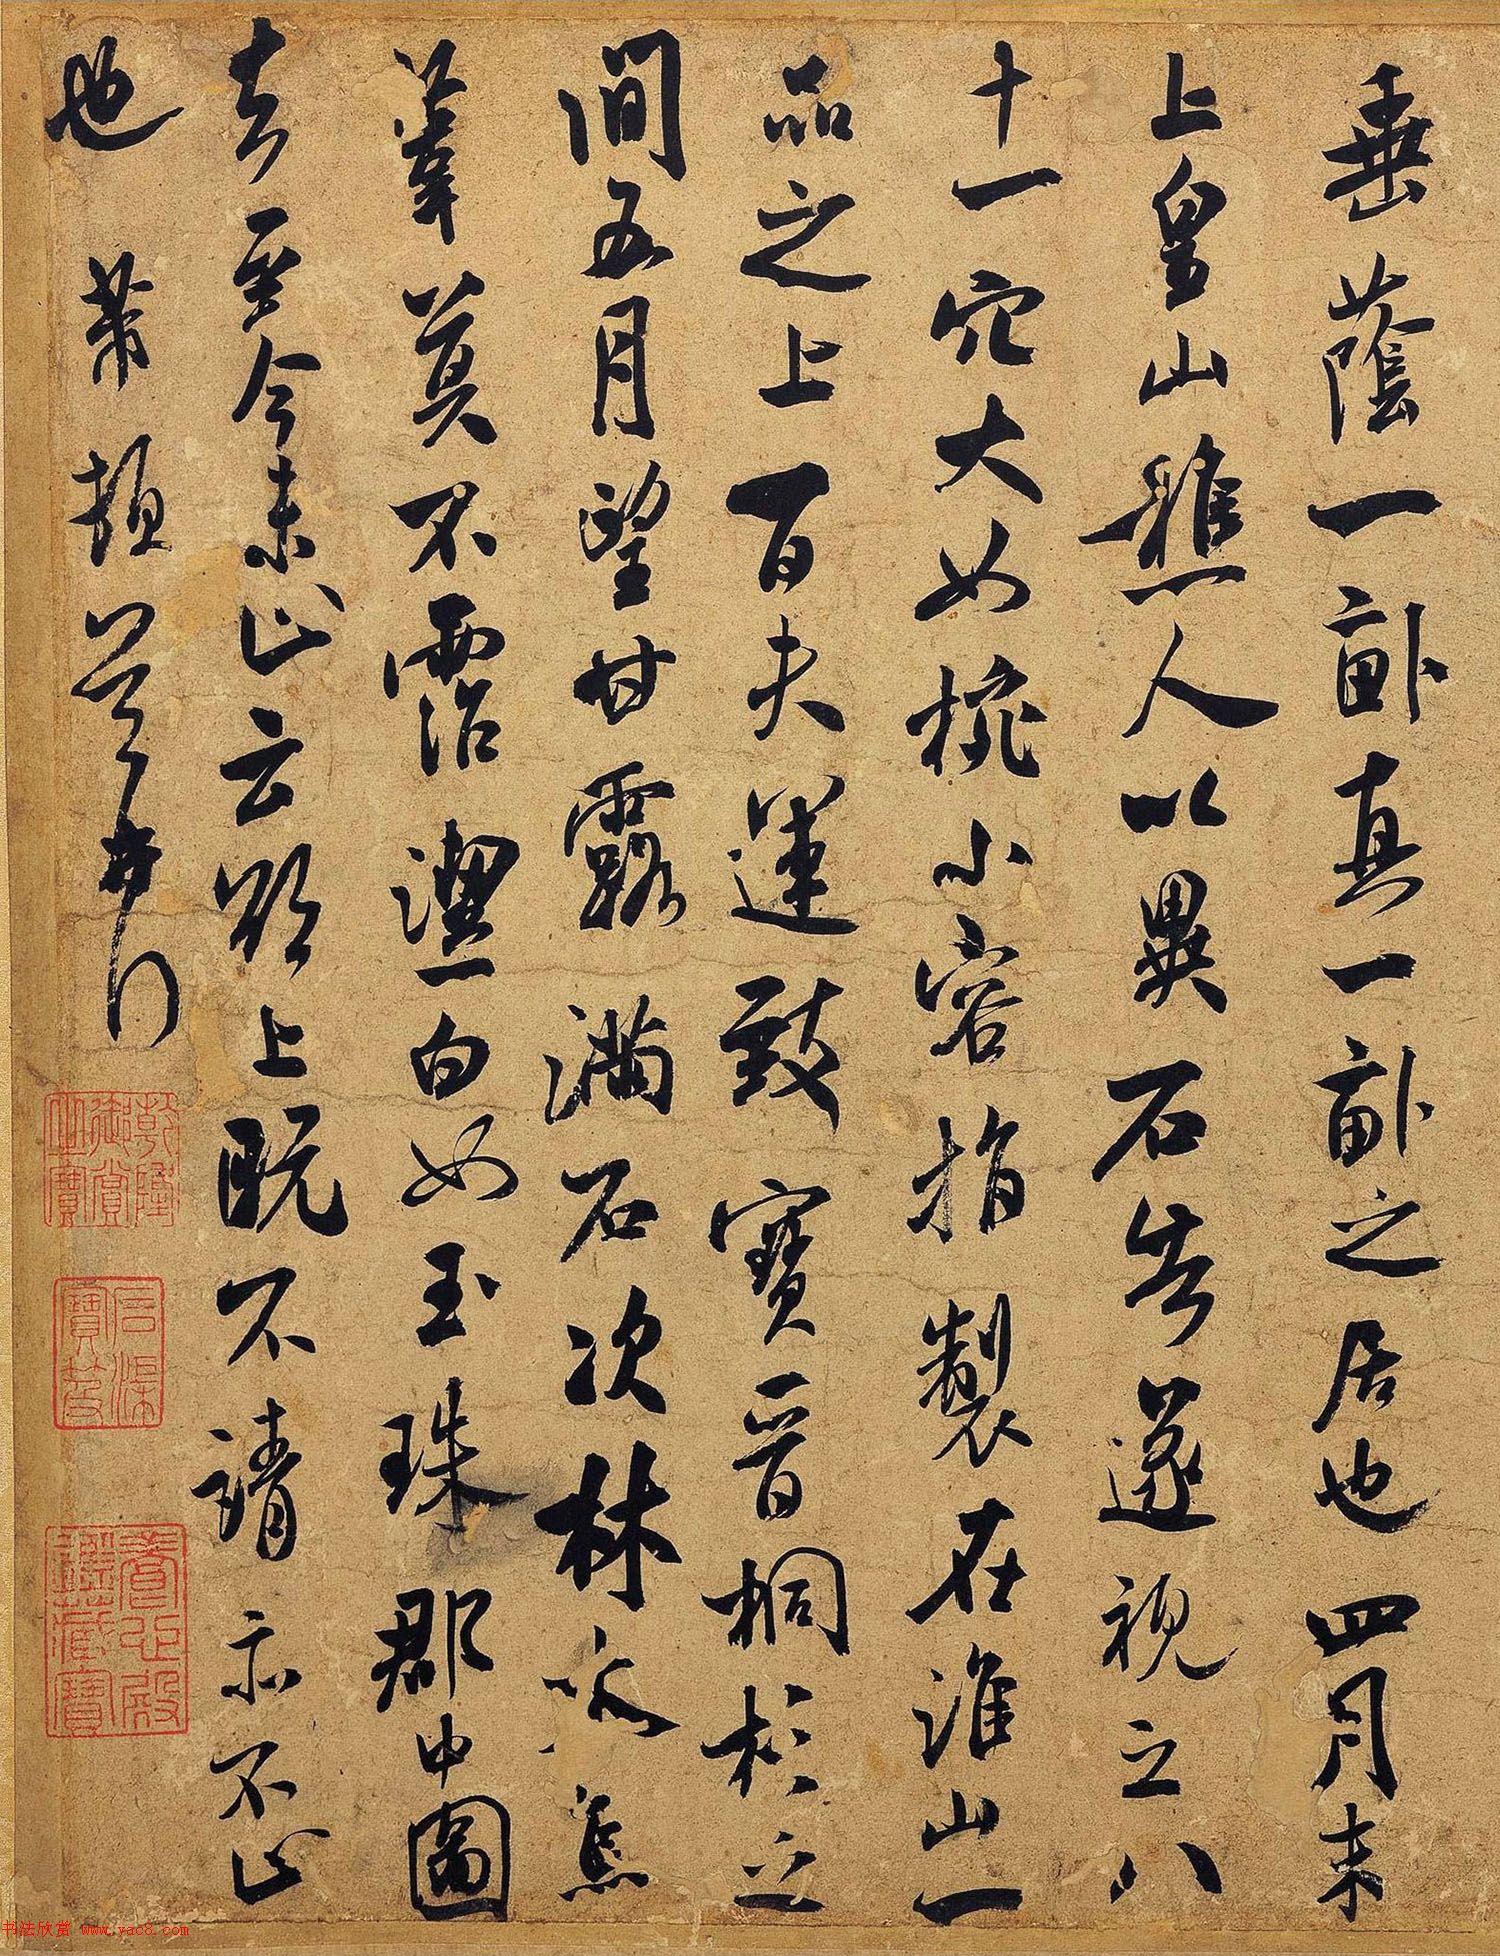 垂蔭一畝真一畝之居也四月末
上皇山樵人以異石告遂視之八
十一穴大如椀小容指製在淮山一
品之上百夫運致寶晉桐杉之
間五月望甘露滿石次林焦
葦莫不霑潔白如玉珠郡中圖
去至今未止云欲上既不請亦不止
也芾頓首再拜
乾隆御賞之寶
石渠寶笈
養心殿鑑藏寶
书法欣赏 www.yac8.com